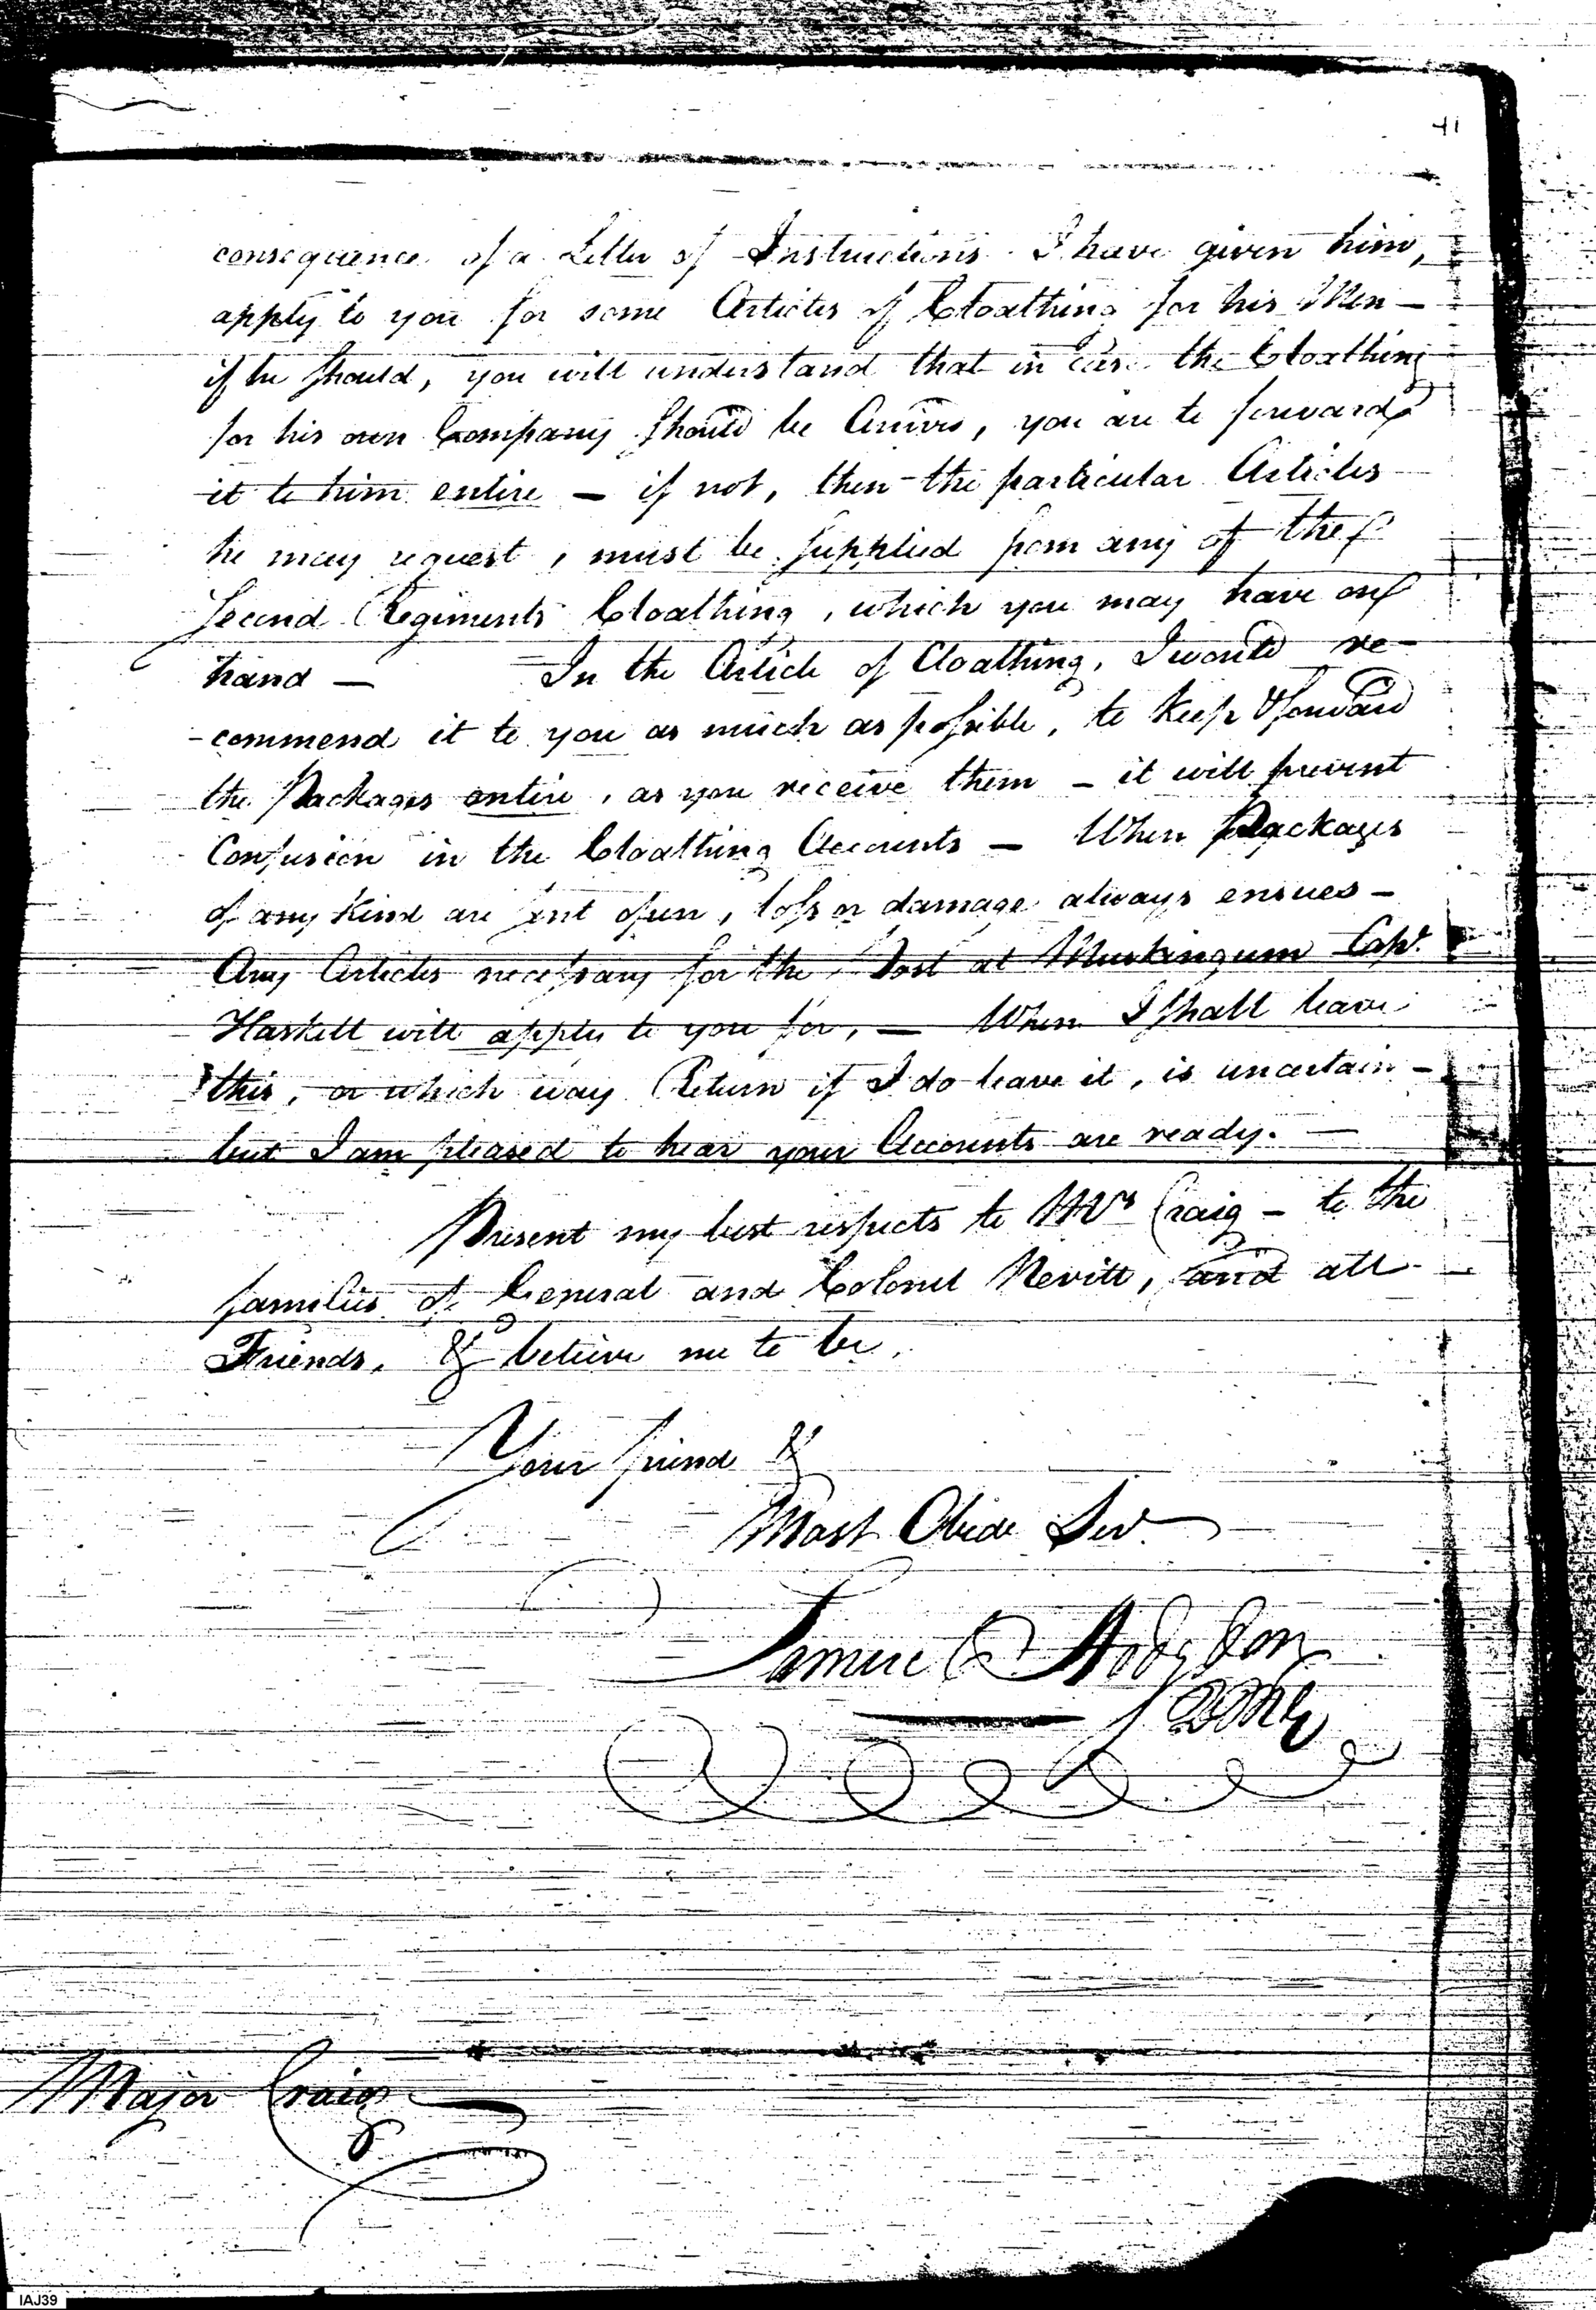 41
consequence of a Letter of Instructions I have given him,
apply to you for some Articles of Cloathing for his Men —
if he should, you will understand that in case the Cloathing
for his own Company should be Arrived, you are to forward
it to him entire — if not, then the particular Articles
he may request, must be supplied from any of the
second Regiments Cloathing, which you may have on
hand — In the Article of Cloathing, I would re-
-commend it to you as much as possible, to keep & forward
the Packages entire, as you receive them — it will prevent
Confusion in the Cloathing Accounts — When Packages
of any Kind are sent open, loss or damage always ensues —
Any Articles necessary for the Post at Muskingum Capt.
Haskell will apply to you for, — When I shall leave
this, or which way Return if I do leave it, is uncertain —
but I am pleased to hear your Accounts are ready. —
Present my best respects to Mrs Craig — to the
families of General and Colonel Nevill, and all
Friends, & believe me to be,
Your friend &
Most Obedt Servt
Samuel Hodgdon
QMG
Major Craig
IAJ39